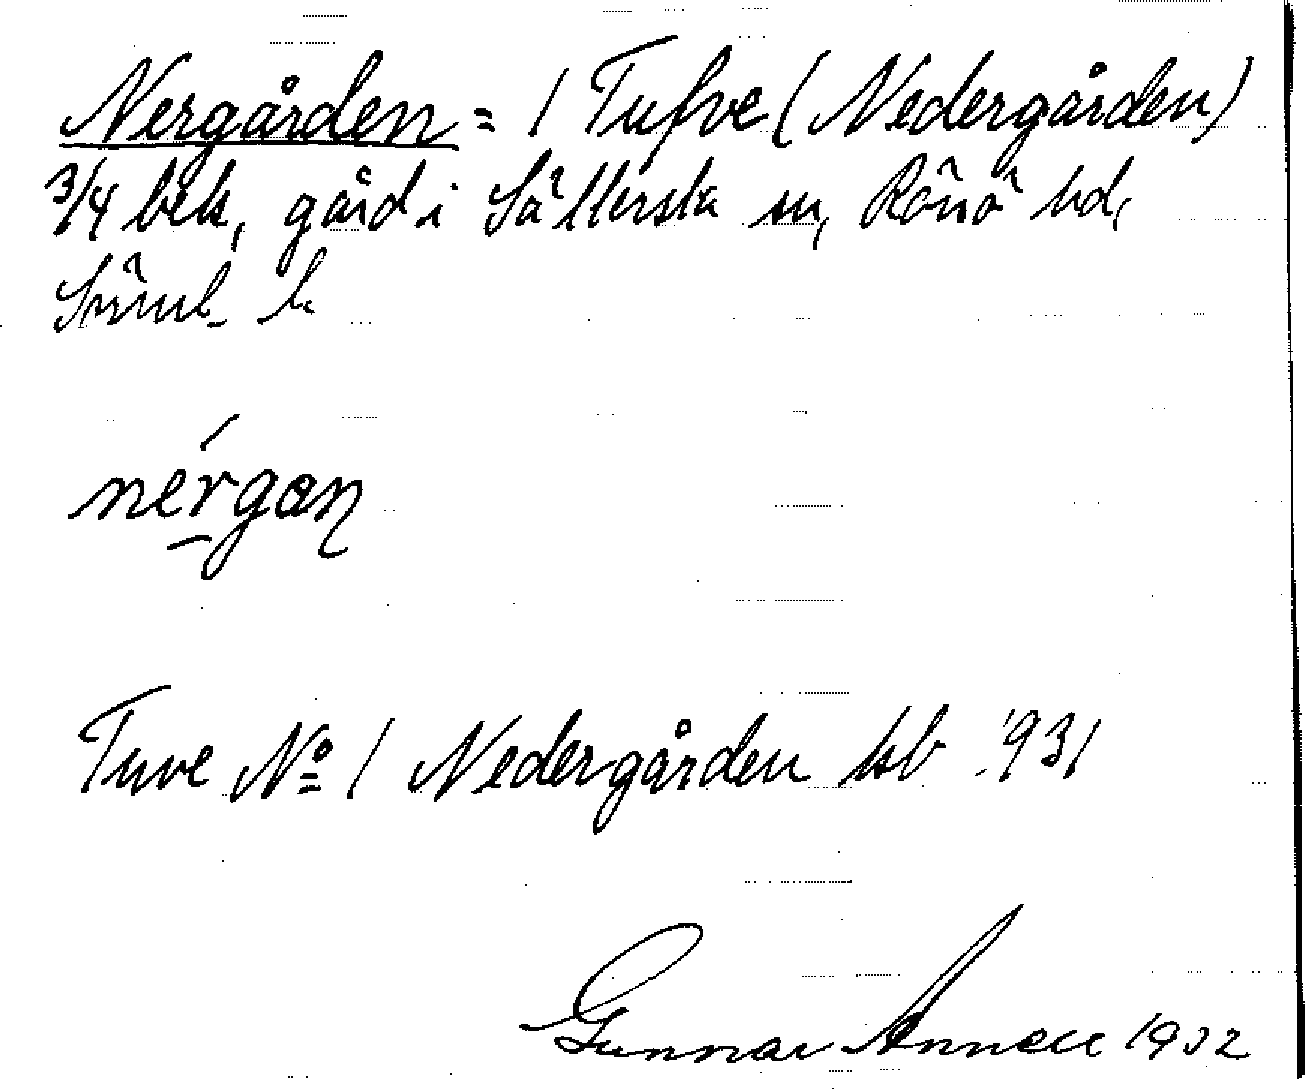 Nergården = 1 Tufve (Nedergården)
3/4 bek, gård i Sättersta sn, Rönö hd,
Sörml. l.
nérgan
Tuve No 1 Nedergården kb. '931
Gunnar Annell 1932